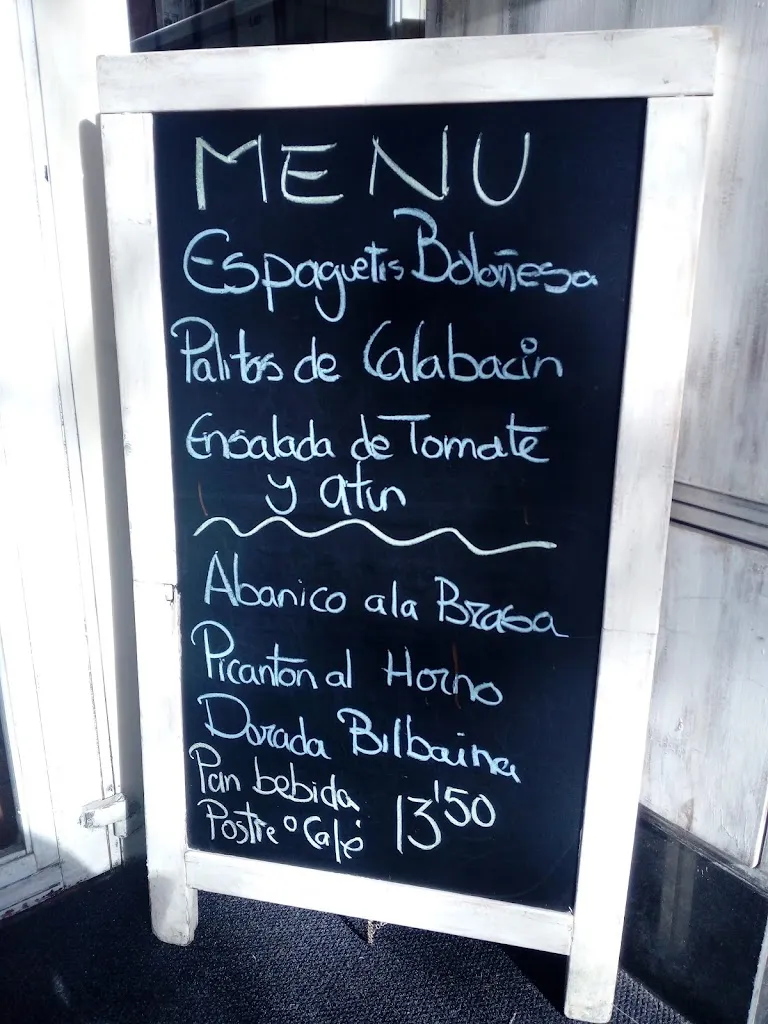 MENU
Espaguetis Boloñesa
Palitos de Calabacin
Ensalada de Tomate
y atun
Abanico a la Brasa
Picanton al Horno
Dorada Bilbaina
Pan bebida
Postre o Café 13'50